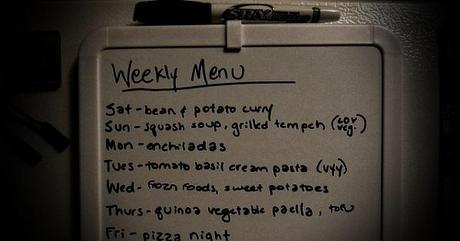 Weekly Menu
Sat - bean & potato curry
Sun - squash soup, grilled tempeh
Mon - enchiladas
Tues - tomato basil cream pasta
Wed - foods, sweet potatoes
Thurs - quinoa vegetable paella, tofu
Fri - pizza night